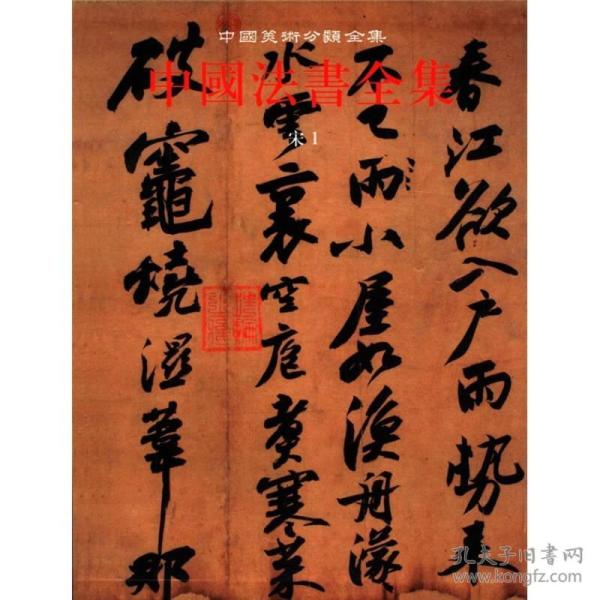 中國美術分類全集
中國法書全集
宋1
春江欲入户雨勢来
不已雨小屋如漁舟濛〻
水雲裏空庖煮寒菜
破竈燒濕葦那
孔夫子旧书网
www.kongfz.com